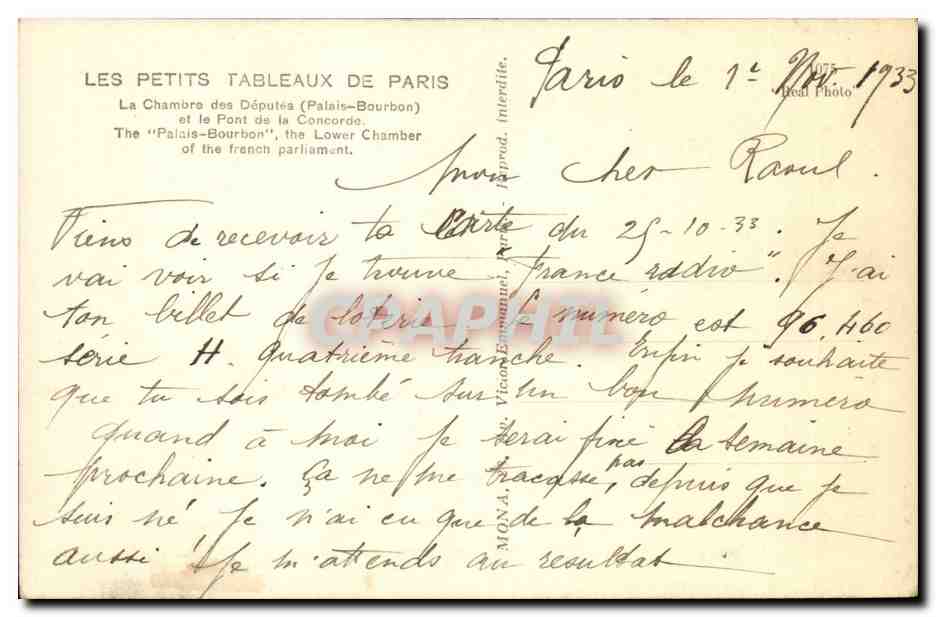 LES PETITS TABLEAUX DE PARIS
La Chambre des Députés (Palais-Bourbon)
et le Pont de la Concorde.
The "Palais-Bourbon", the Lower Chamber
of the french parliament.
MONA, v. Victor-Emmanuel, Paris. - Reprod. interdite.
1075
Real Photo
Paris le 1er Nov. 1933
Mon cher Raoul.
Viens de recevoir ta Carte du 25-10-33. Je
vai voir si je trouve "france radio". J'ai
ton billet de loterie. Le numéro est 96.460
série H. Quatrième tranche. Enfin je souhaite
que tu sois tombé sur un bon numéro
quand à moi je serai fixé la semaine
prochaine. Ça ne me tracasse pas, depuis que je
suis né je n'ai eu que de la malchance
aussi je m'attends au résultat.
CPAPHIL